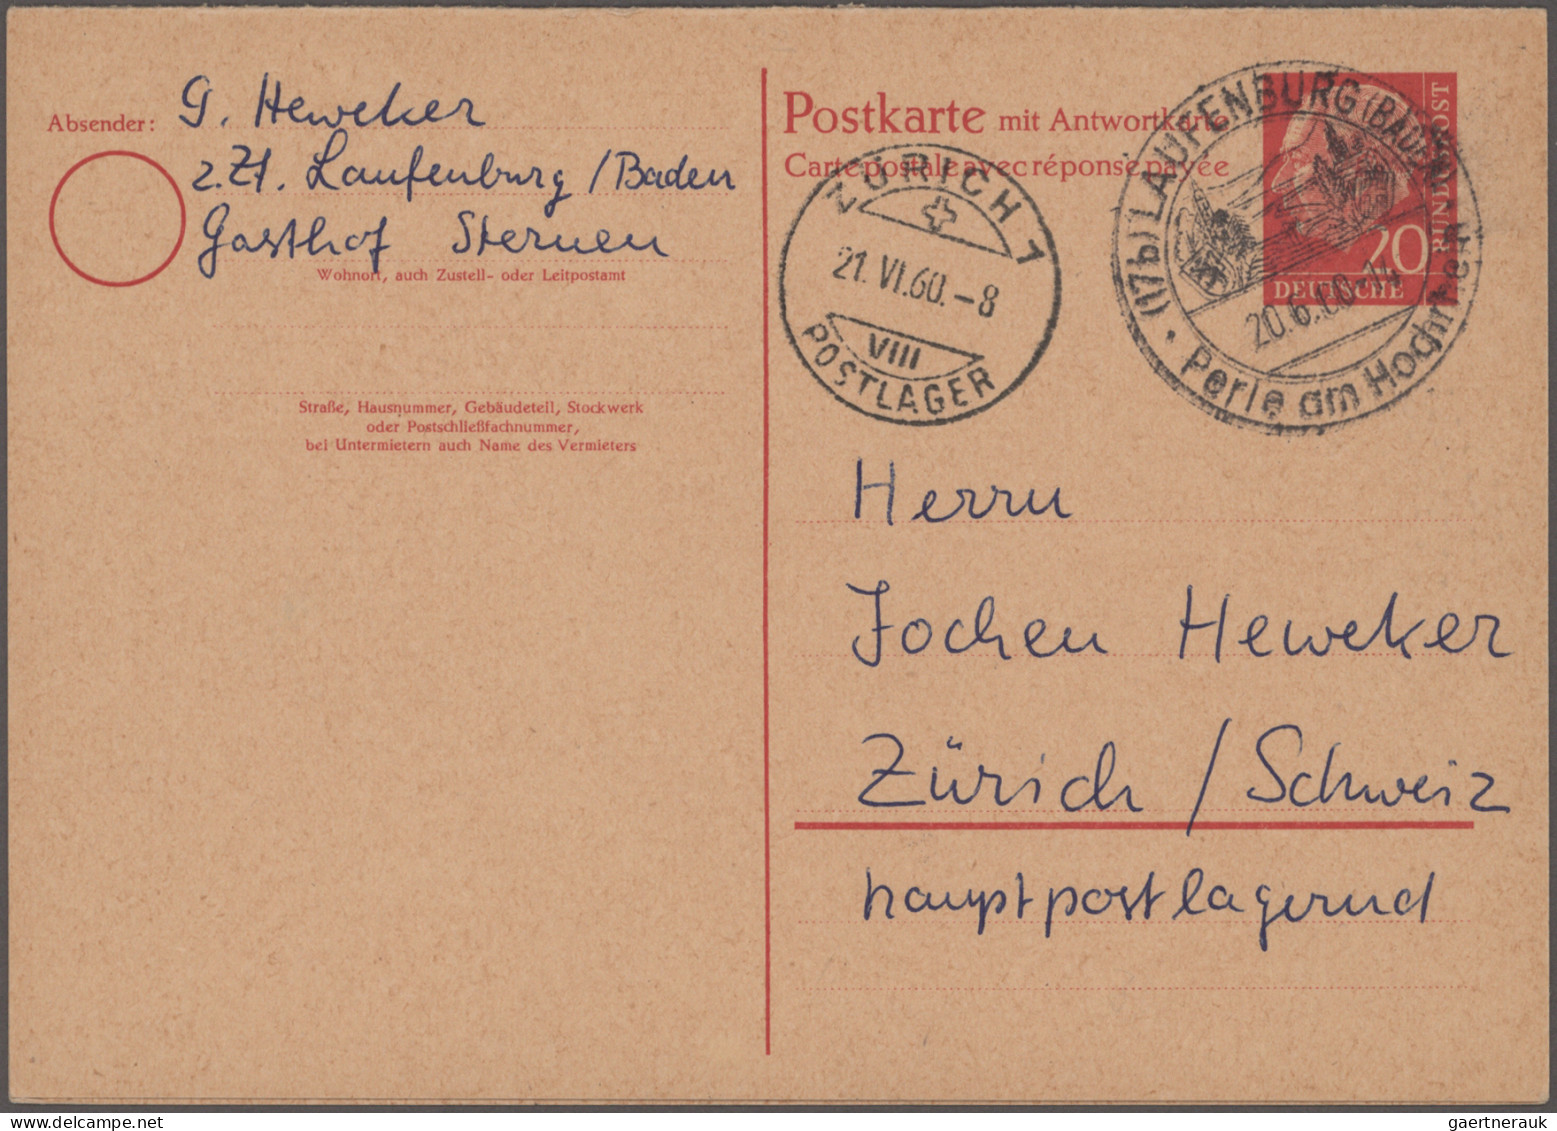 Absender: G. Heweker
z.Zt. Laufenburg / Baden
Gasthof Sternen
Wohnort, auch Zustell- oder Leitpostamt
Straße, Hausnummer, Gebäudeteil, Stockwerk
oder Postschließfachnummer,
bei Untermietern auch Name des Vermieters
Postkarte mit Antwortkarte
Carte postale avec réponse payée
ZÜRICH 1
21. VI. 60. - 8
VIII
POSTLAGER
(17b) LAUFENBURG (BADEN)
20.6.60-14
Perle am Hochrhein
20
DEUTSCHE
BUNDESPOST
Herrn
Jochen Heweker
Zürich / Schweiz
hauptpostlagernd
gaertnerauk @ delcampe.net